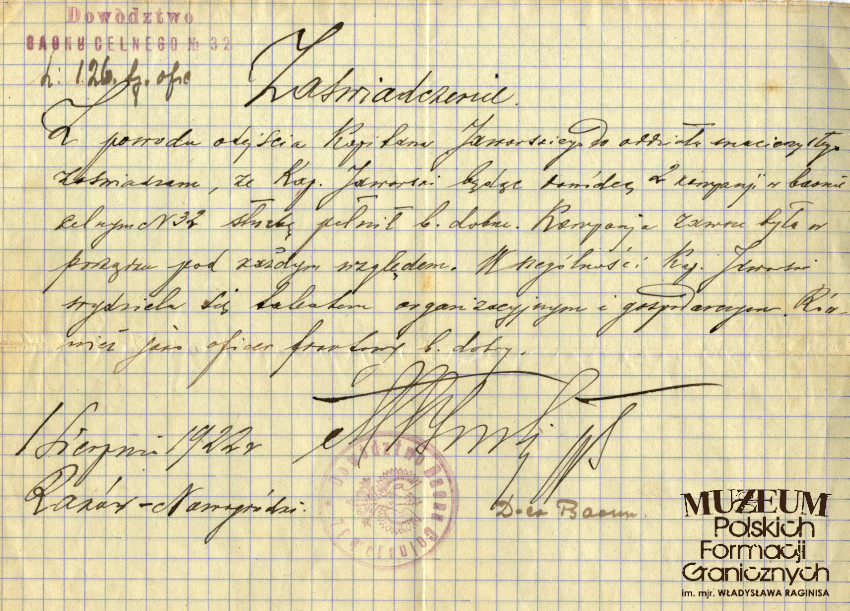 Dowództwo
BAONU CELNEGO № 32
L: 126. fz. ofic
Zaświadczenie.
Z powodu odejścia Kapitana Jaworskiego do oddziału macierzystego
zaświadczam, że Kap. Jaworski będąc komdcą 2 kompanji w baonie
celnym N 32 służbę pełnił b. dobrze. Kompanja zawsze była w
porządku pod każdym względem. W szególności Kap. Jaworski
wydziela się talentem organizacyjnym i gospodarczym. Rów-
nież jako oficer frontowy b. dobry.
1 Sierpnia 1922 r
Raków - Nowogródzki.
Dowództwo Baonu Celnego
D-ca Baonu.
MUZEUM
Polskich
Formacji
Granicznych
im. mjr. WŁADYSŁAWA RAGINISA